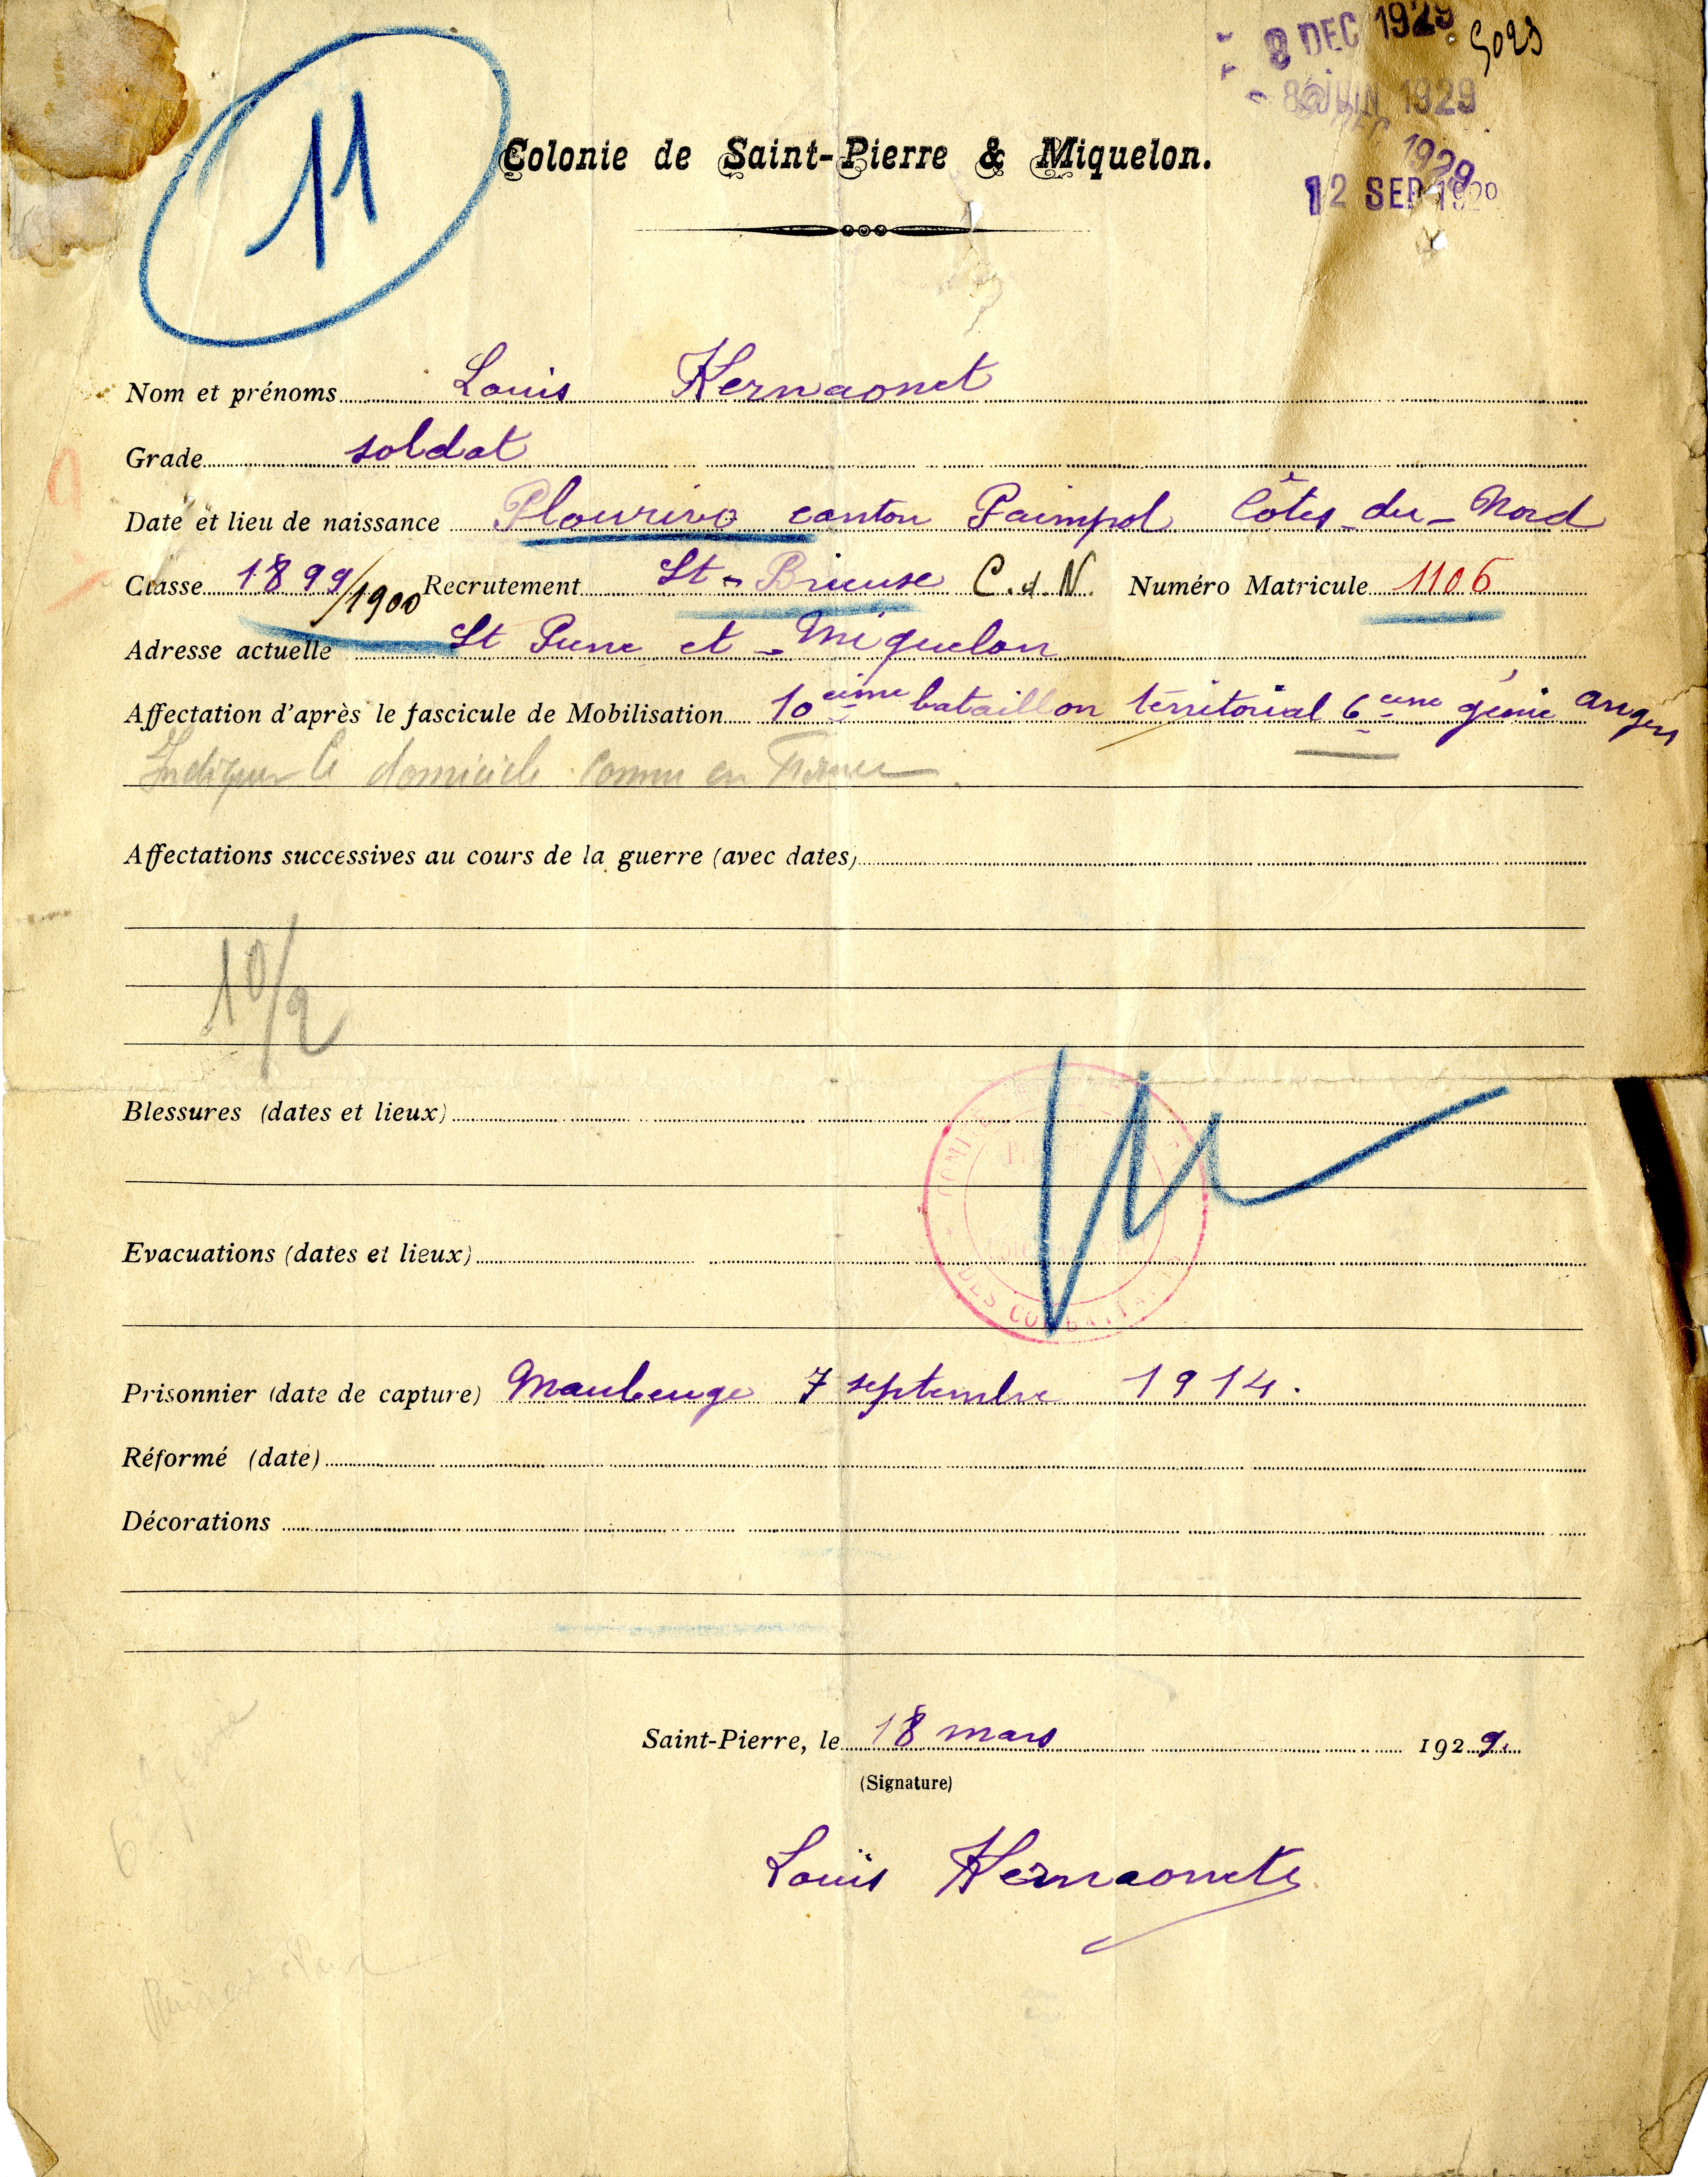 8 DEC 1929
5029
8 JUIN 1929
1929
12 SEP 1929
11
Colonie de Saint-Pierre & Miquelon.
Nom et prénoms Louis Kernaonet
Grade soldat
Date et lieu de naissance Plourivo canton Paimpol Côtes-du-Nord
Classe 1899/1900 Recrutement St-Brieuse C.d.N. Numéro Matricule 1106
Adresse actuelle St Pierre et-Miquelon
Affectation d'après le fascicule de Mobilisation 10 eime bataillon térritorial 6 eme génie angers
Indiquer le domicile connu en France.
Affectations successives au cours de la guerre (avec dates)
10/9
Blessures (dates et lieux)
Evacuations (dates et lieux)
DES COMBATTANTS
Prisonnier (date de capture) Maubeuge 7 septembre 1914.
Réformé (date)
Décorations
Saint-Pierre, le 18 mars 1929.
(Signature)
6 génie
Louis Kernaonet